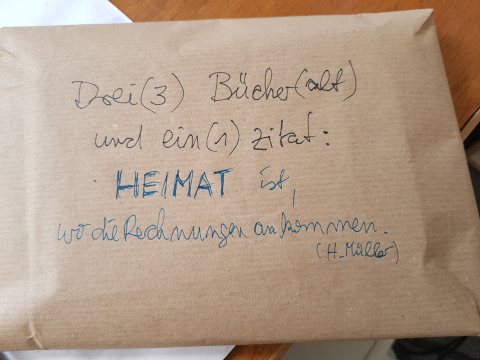 Drei(3) Bücher(alt)
und ein(1) Zitat:
HEIMAT ist,
wo die Rechnungen ankommen.
(H. Müller)